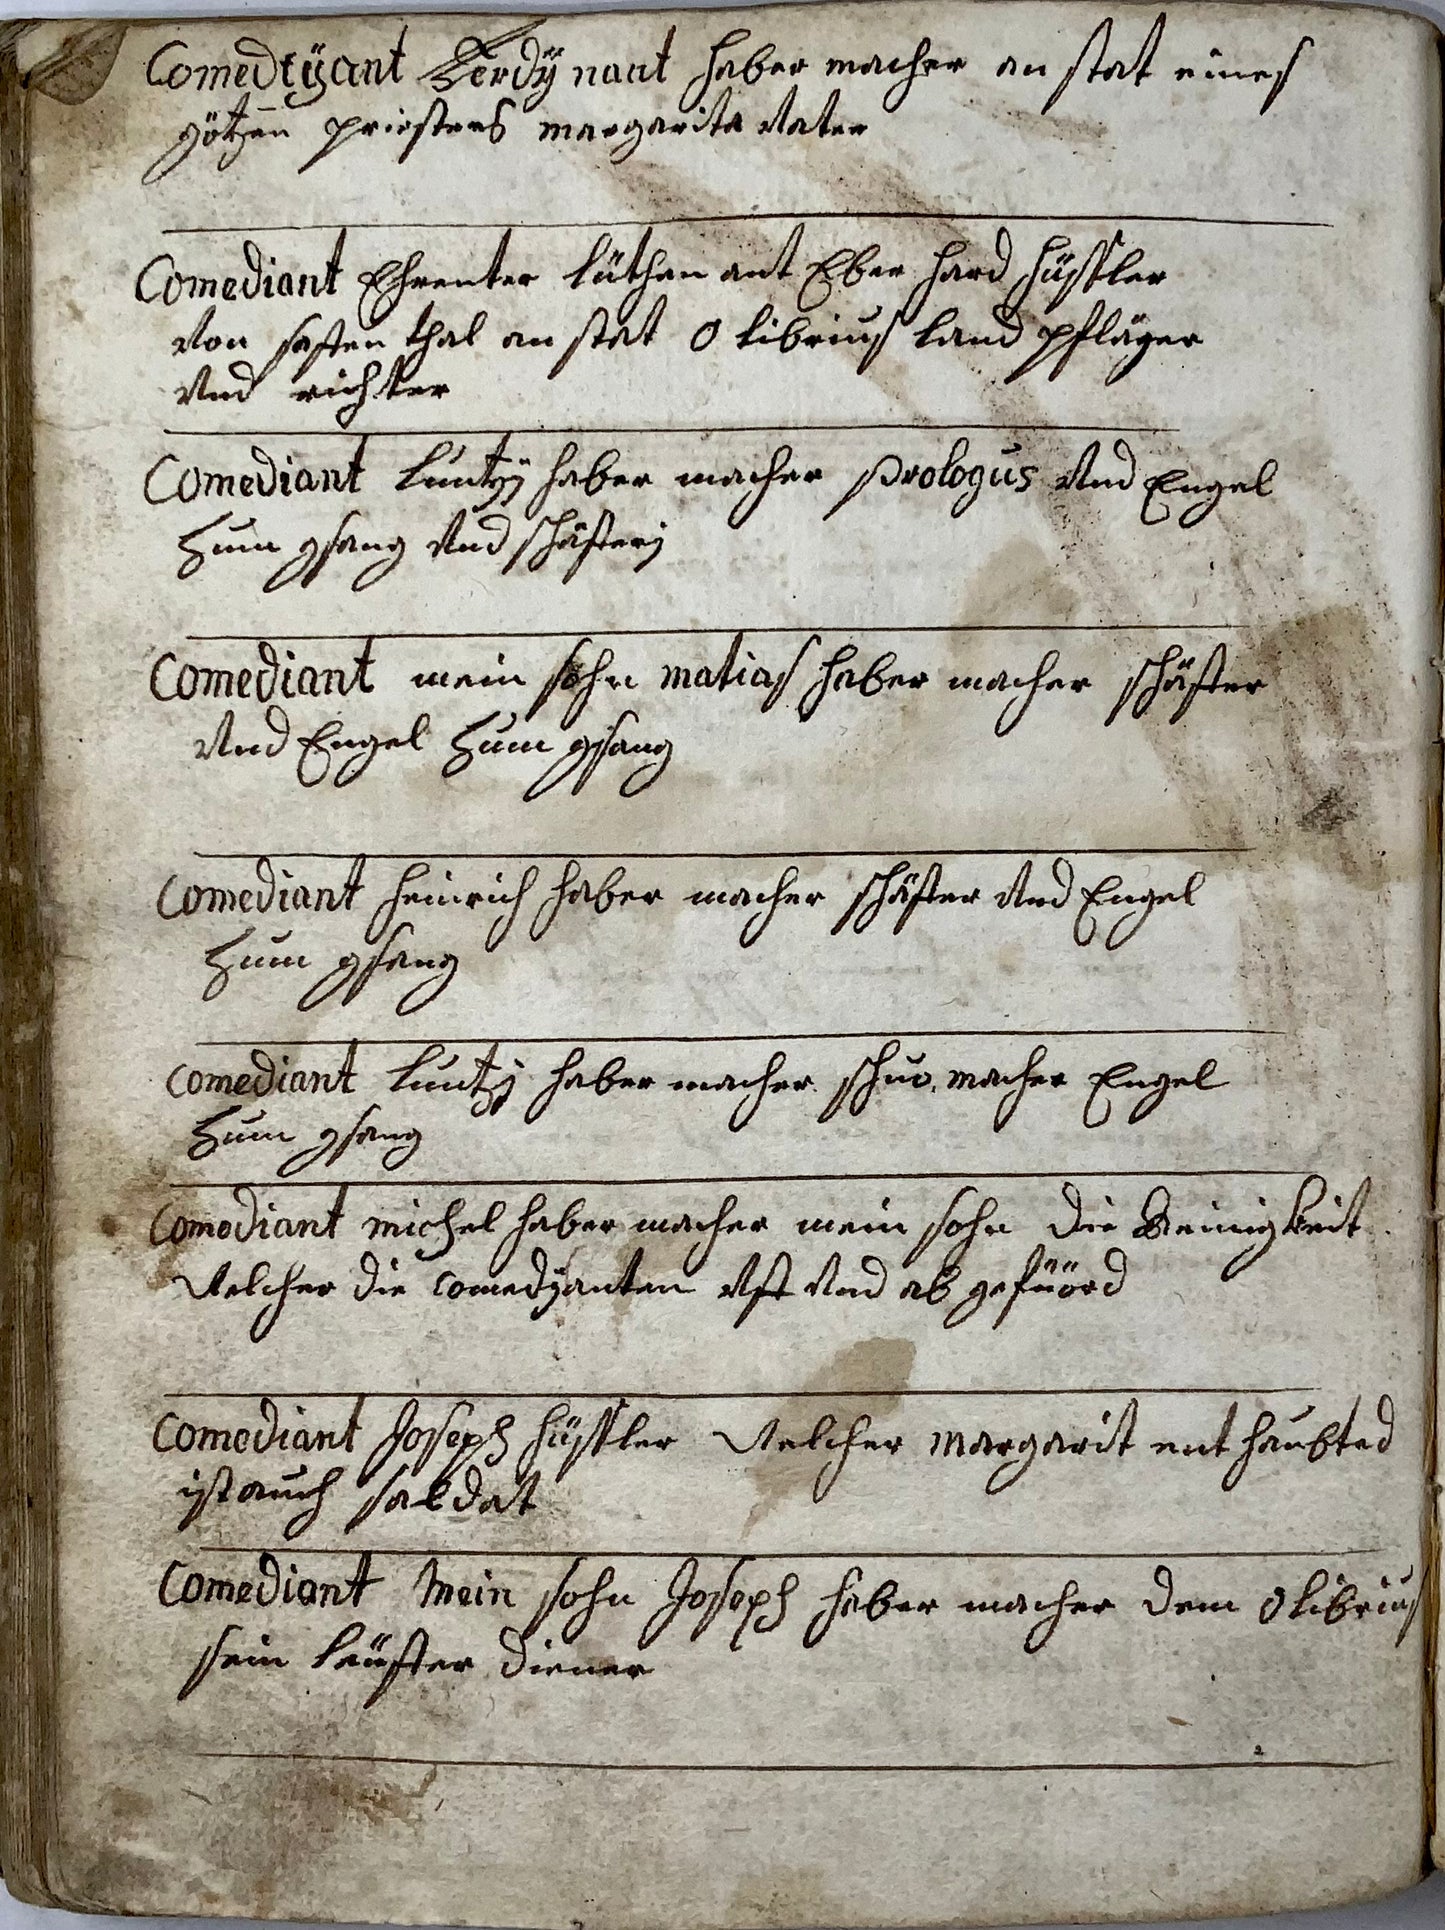 Comedtÿant Ferdÿ nant haber macher an stat eines
götzen priesters margarita Vater
Comediant Ehrenter lüthen ant Eber hard hüssler
Von sassen thal an stat O librius land pfläger
Vnd richter
Comediant luntzÿ haber macher prologus Vnd Engel
Zum gsang Vnd schäfferÿ
Comediant mein sohn matias haber macher schäffer
Vnd Engel Zum gsang
Comediant heinrich haber macher schäffer Vnd Engel
Zum gsang
Comediant luntzj haber macher schuo macher Engel
Zum gsang
Comediant michel haber macher mein sohn die Keinigkeit
Welcher die comedÿanten Vff Vnd ab gefüörd
Comediant Joseph hüssler Welcher Margarit ent haubted
ist auch saldat
Comediant Mein sohn Joseph haber macher dem Olibrius
sein läüffer diener